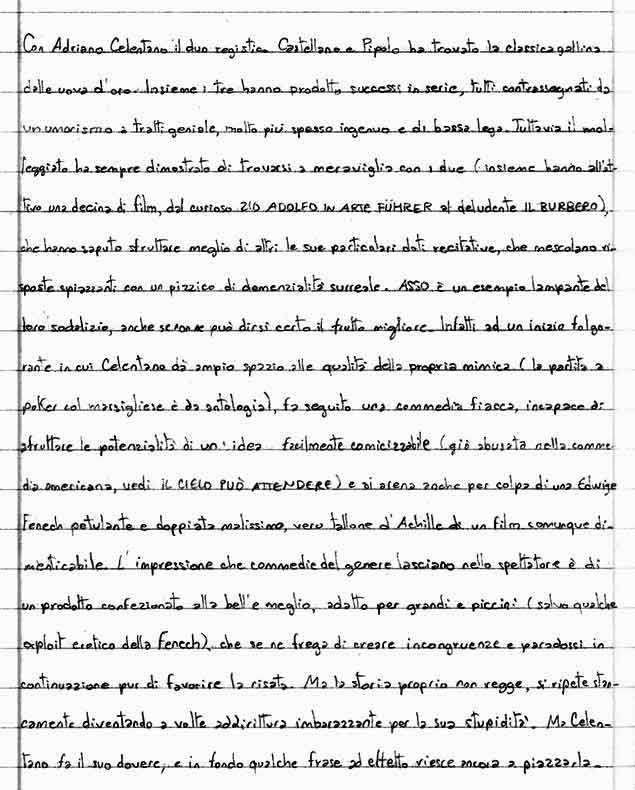 Con Adriano Celentano il duo registico Castellano e Pipolo ha trovato la classica gallina
dalle uova d'oro. Insieme i tre hanno prodotto successi in serie, tutti contrassegnati da
un umorismo a tratti geniale, molto più spesso ingenuo e di bassa lega. Tuttavia il mol-
leggiato ha sempre dimostrato di trovarsi a meraviglia con i due (insieme hanno all'at-
tivo una decina di film, dal curioso ZIO ADOLFO IN ARTE FÜHRER al deludente IL BURBERO),
che hanno saputo sfruttare meglio di altri le sue particolari doti recitative, che mescolano ri-
sposte spiazzanti con un pizzico di demenzialità surreale. ASSO è un esempio lampante del
loro sodalizio, anche se non se può dirsi certo il frutto migliore. Infatti ad un inizio folgo-
rante in cui Celentano dà ampio spazio alle qualità della propria mimica (la partita a
poker col marsigliese è da antologia), fa seguito una commedia fiacca, incapace di
sfruttare le potenzialità di un'idea facilmente comicizzabile (già abusata nella comme-
dia americana, vedi IL CIELO PUÒ ATTENDERE) e si arena anche per colpa di una Edwige
Fenech petulante e doppiata malissimo, vero tallone d'Achille di un film comunque di-
menticabile. L'impressione che commedie del genere lasciano nello spettatore è di
un prodotto confezionato alla bell'e meglio, adatto per grandi e piccini (salvo qualche
exploit erotico della Fenech), che se ne frega di creare incongruenze e paradossi in
continuazione pur di favorire la risata. Ma la storia proprio non regge, si ripete stan-
camente diventando a volte addirittura imbarazzante per la sua stupidità. Ma Celen-
tano fa il suo dovere, e in fondo qualche frase ad effetto riesce ancora a piazzarla.